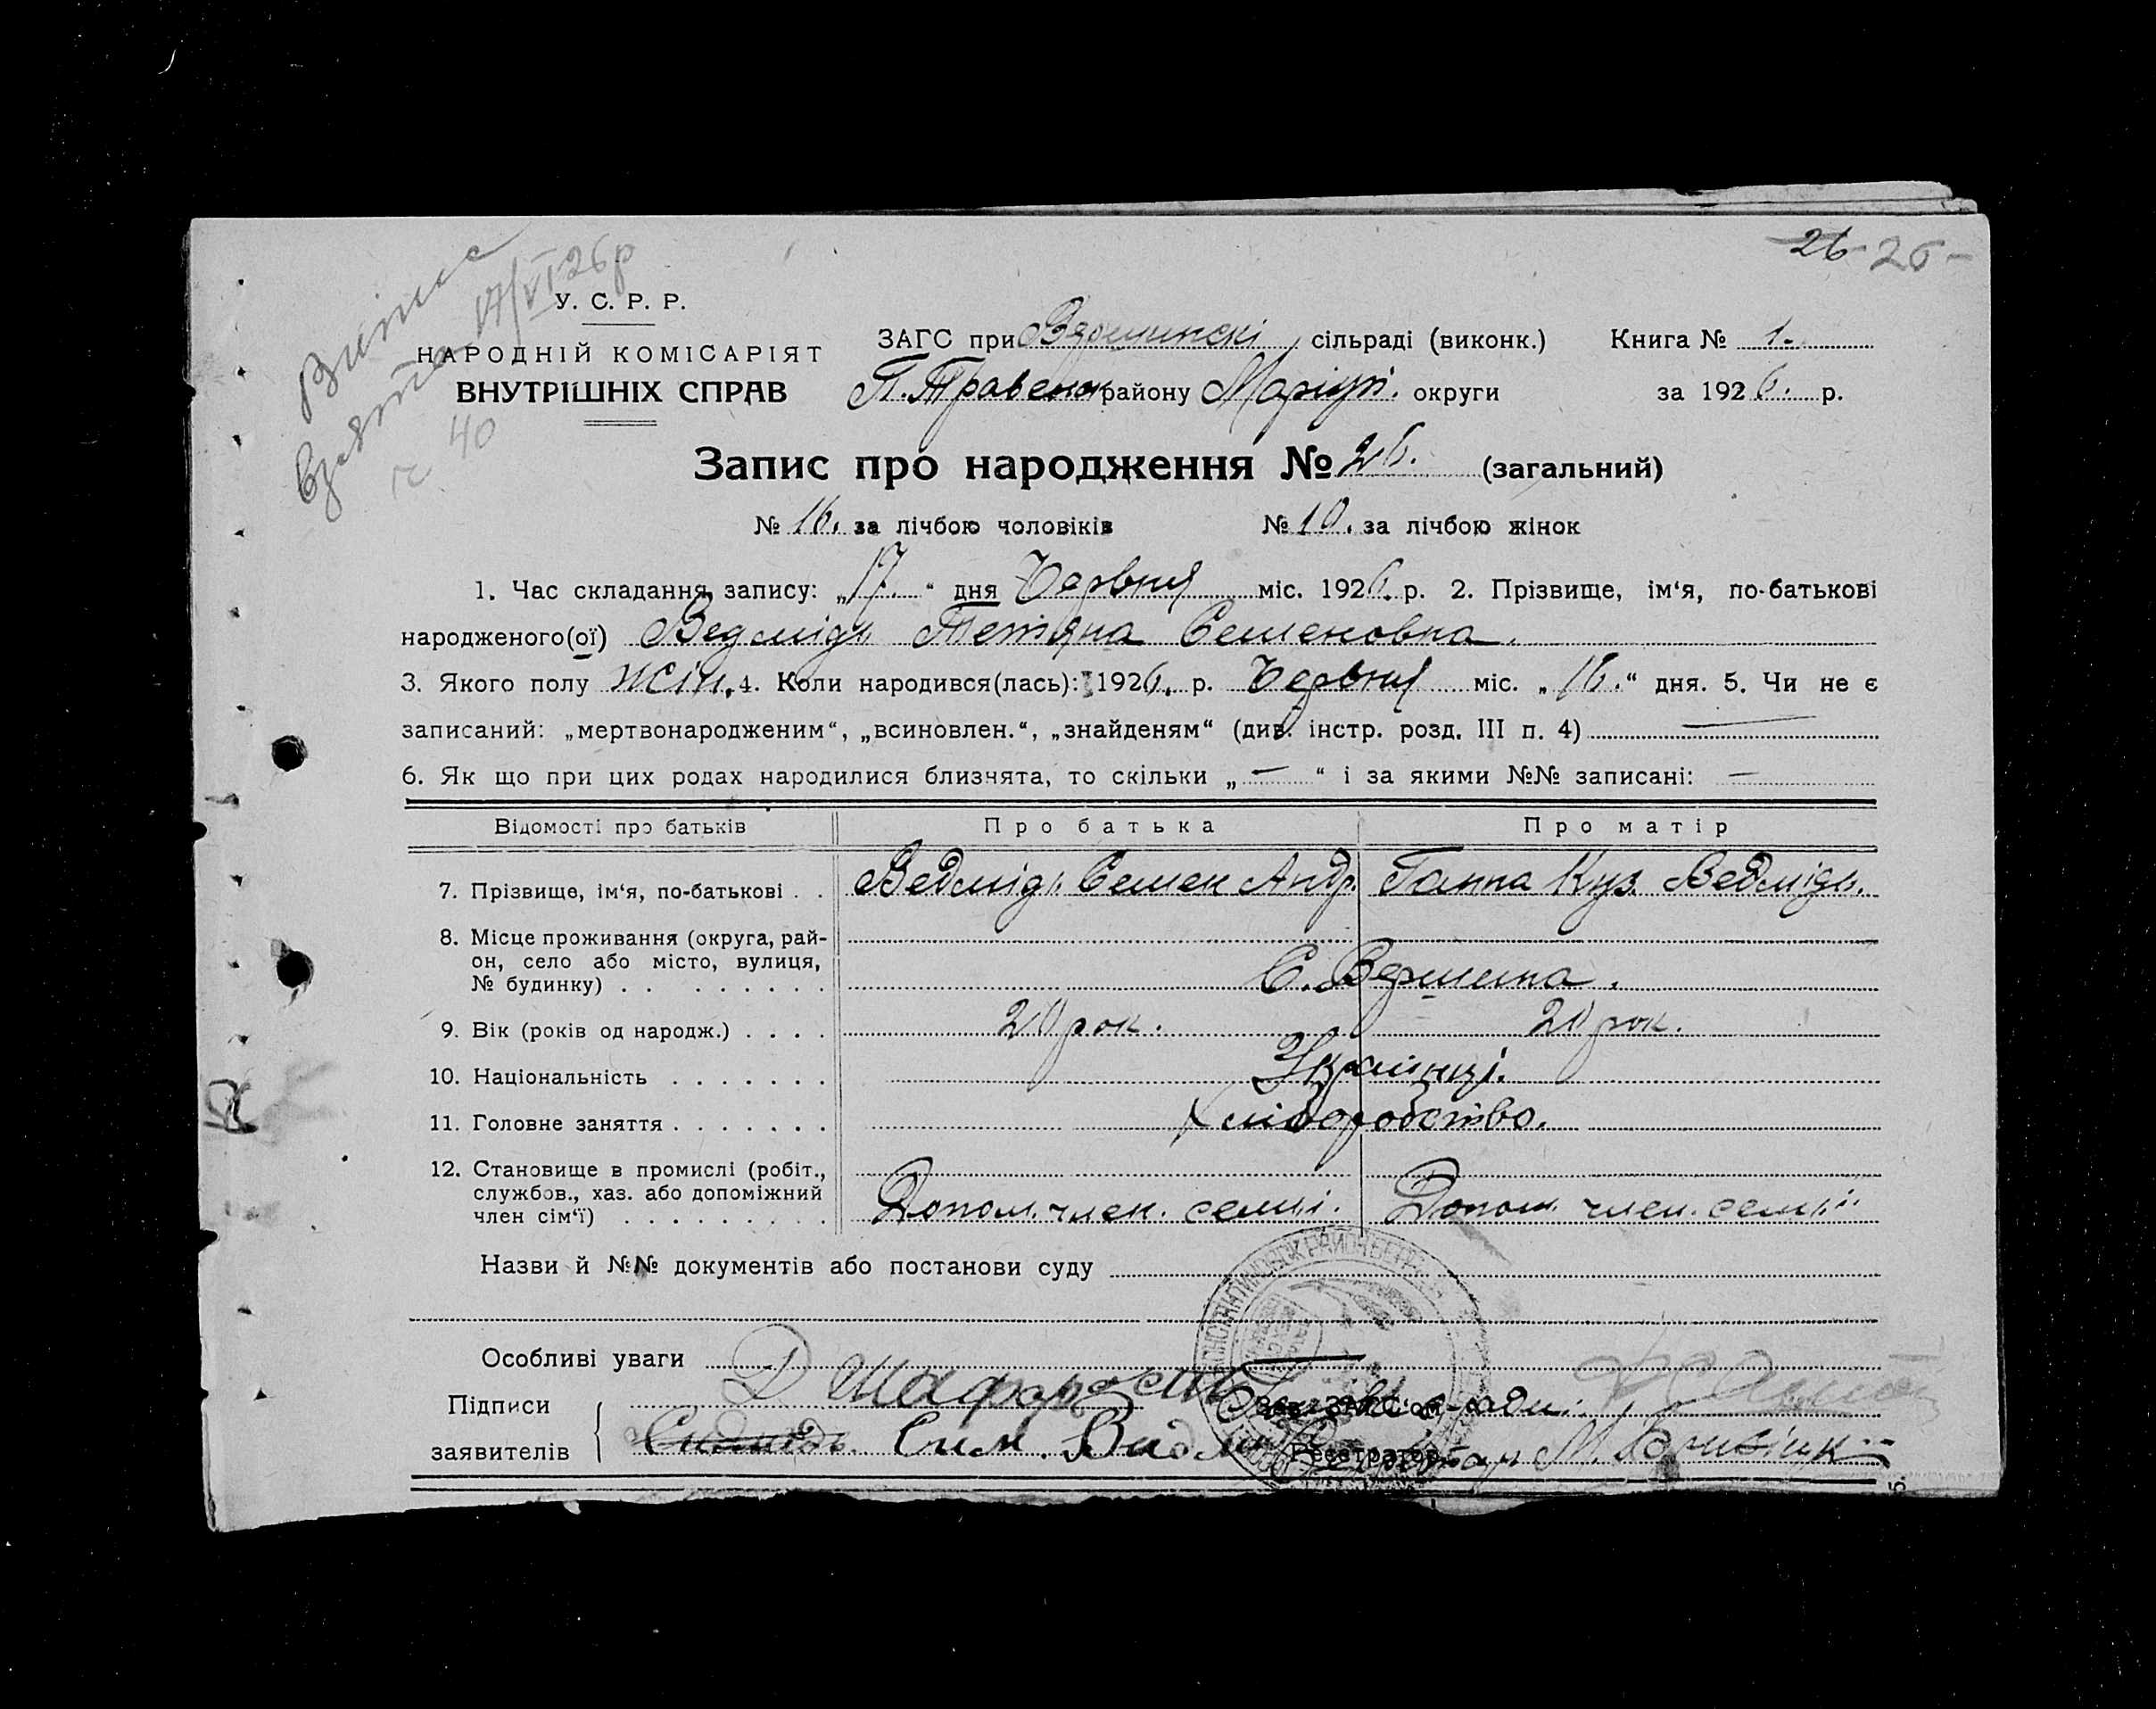 26 26 -
Витяг
взято 17/VI 26 р
ч 40
У. С. Р. Р.
НАРОДНІЙ КОМІСАРІЯТ
ВНУТРІШНІХ СПРАВ
ЗАГС при Вершинскі сільраді (виконк.) Книга № 1.
П. Травен. району Маріуп. округи за 1926. р.
Запис про народження № 26. (загальний)
№ 16. за лічбою чоловіків № 10. за лічбою жінок
1. Час складання запису: „17.“ дня Червня міс. 1926. р. 2. Прізвище, ім‘я, по-батькові
народженого(ої) Ведмідь Тетяна Семеновна.
3. Якого полу жін. 4. Коли народився(лась): 1926. р. Червня міс. „16.“ дня. 5. Чи не є
записаний: „мертвонародженим“, „всиновлен.“, „знайденям“ (див. інстр. розд. III п. 4) —
6. Як що при цих родах народилися близнята, то скільки „—“ і за якими №№ записані: —
Відомості про батьків Про батька Про матір
7. Прізвище, ім‘я, по-батькові . . Ведмідь Семен Андр. Ганна Куз. Ведмідь.
8. Місце проживання (округа, рай-
он, село або місто, вулиця,
№ будинку) . . . . . . . . С. Вершина.
9. Вік (років од народж.) . . . . 20 рок. 20 рок.
10. Національність . . . . . . . Українці.
11. Головне заняття . . . . . . . Хліборобство.
12. Становище в промислі (робіт.,
службов., хаз. або допоміжний
член сім‘ї) . . . . . . . . . Допом. член. семьі. Допом. член. семьі.
Назви й №№ документів або постанови суду
Особливі уваги
Підписи
заявителів
Д Шафорост
Сим. Видм
Реєстратор